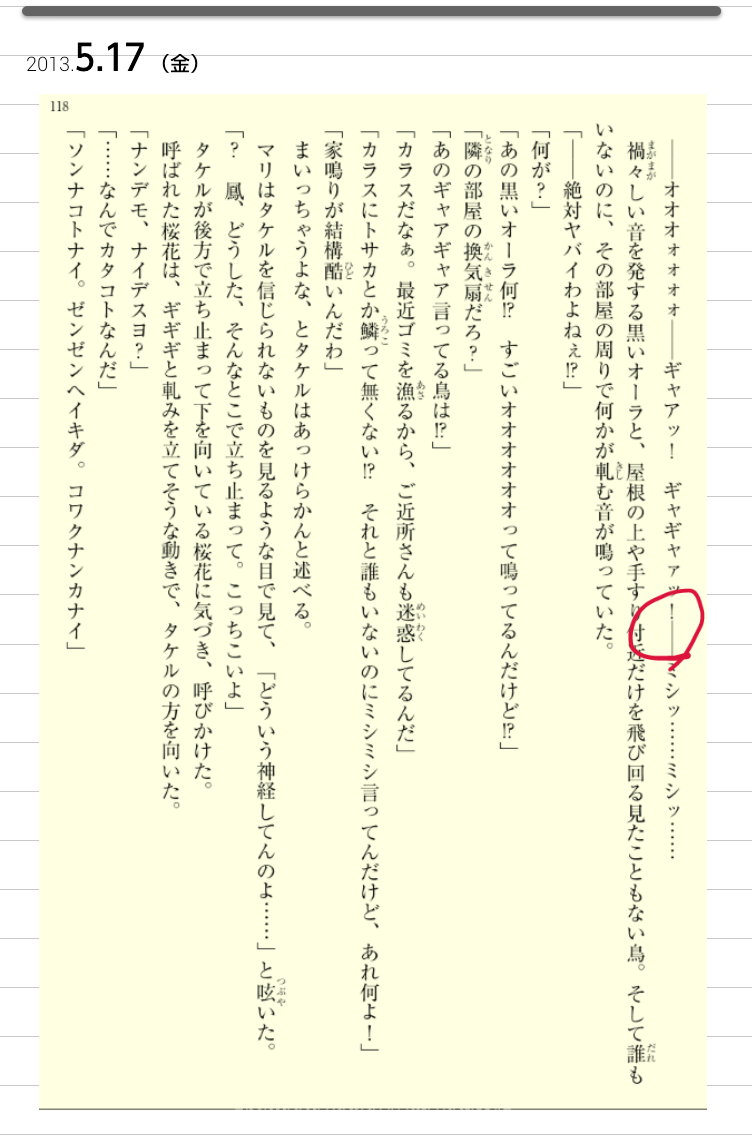 2013.5.17（金）
118
――オオオォォォォ――ギャアッ！　ギャギャァッ！――ミシッ……ミシッ……
禍々しい音を発する黒いオーラと、屋根の上や手すり付近だけを飛び回る見たこともない鳥。そして誰も
いないのに、その部屋の周りで何かが軋む音が鳴っていた。
「――絶対ヤバイわよねぇ!?」
「何が？」
「あの黒いオーラ何!?　すごいオオオオオオって鳴ってるんだけど!?」
「隣の部屋の換気扇だろ？」
「あのギャアギャア言ってる鳥は!?」
「カラスだなぁ。最近ゴミを漁るから、ご近所さんも迷惑してるんだ」
「カラスにトサカとか鱗って無くない!?　それと誰もいないのにミシミシ言ってんだけど、あれ何よ！」
「家鳴りが結構酷いんだわ」
まいっちゃうよな、とタケルはあっけらかんと述べる。
マリはタケルを信じられないものを見るような目で見て、「どういう神経してんのよ……」と呟いた。
「？　鳳、どうした、そんなとこで立ち止まって。こっちこいよ」
タケルが後方で立ち止まって下を向いている桜花に気づき、呼びかけた。
呼ばれた桜花は、ギギギと軋みを立てそうな動きで、タケルの方を向いた。
「ナンデモ、ナイデスヨ？」
「……なんでカタコトなんだ」
「ソンナコトナイ。ゼンゼンヘイキダ。コワクナンカナイ」